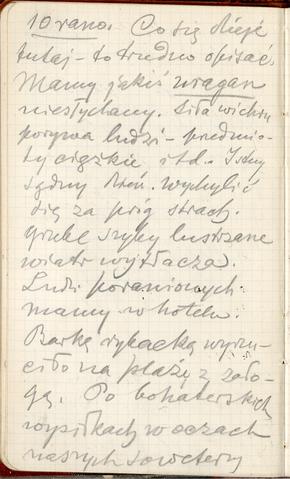 10 rano. Co się dzieje
tutaj - to trudno opisać.
Mamy jakiś uragan
niesłychany. Siła wichru
porywa ludzi - przedmio-
ty ciężkie itd. Istny
sądny dzień. Wychylić
się za próg strach.
Grube szyby lustrzane
wiatr wytłacza.
Ludzi poranionych
mamy w hotelu.
Barkę rybacką wyrzu-
ciło na plażę z zało-
gą. Po bohaterskich
wysiłkach w oczach
naszych